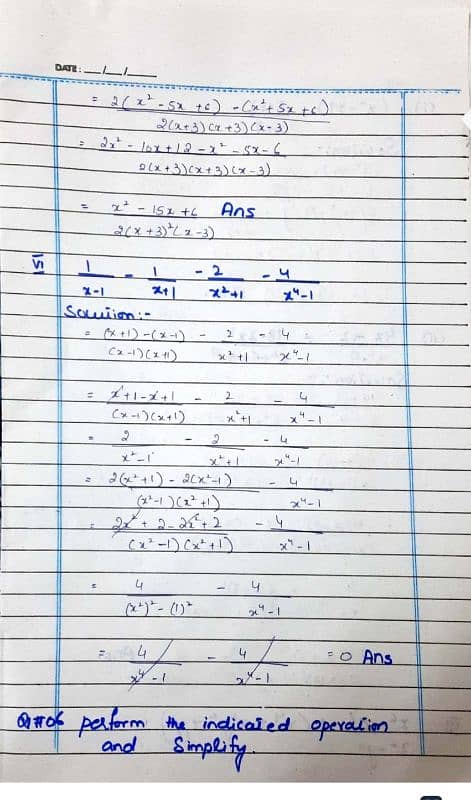 DATE: __/__/____
= 2(x² - 5x + 6) - (x² + 5x + 6)
2(x+3)(x+3)(x-3)
= 2x² - 10x + 12 - x² - 5x - 6
2(x+3)(x+3)(x-3)
= x² - 15x + 6 Ans
2(x+3)²(x-3)
VI 1 - 1 - 2 - 4
x-1 x+1 x²+1 x⁴-1
Solution:-
= (x+1) - (x-1) - 2 - 4
(x-1)(x+1) x²+1 x⁴-1
= x+1-x+1 - 2 - 4
(x-1)(x+1) x²+1 x⁴-1
= 2 - 2 - 4
x²-1 x²+1 x⁴-1
= 2(x²+1) - 2(x²-1) - 4
(x²-1)(x²+1) x⁴-1
= 2x² + 2 - 2x² + 2 - 4
(x²-1)(x²+1) x⁴-1
= 4 - 4
(x²)² - (1)² x⁴-1
= 4 - 4 = 0 Ans
x⁴-1 x⁴-1
Q#06 perform the indicated operation
and Simplify.